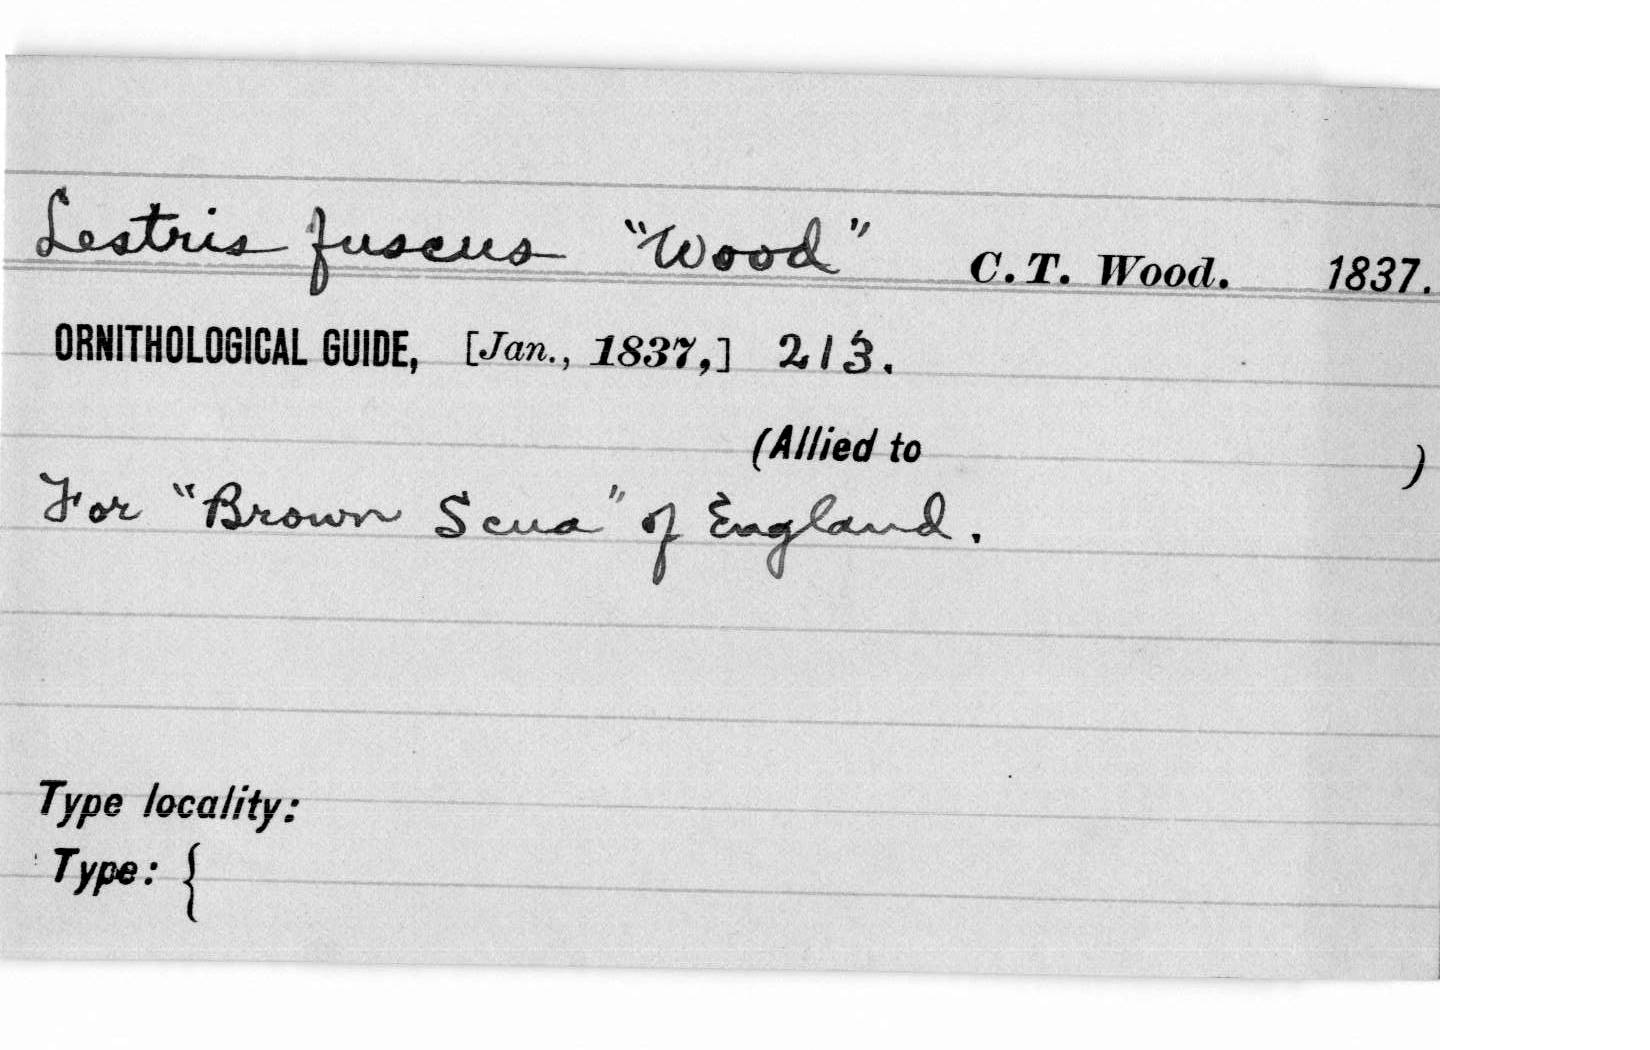 Lestris fuscus "Wood" C. T. Wood. 1837.
ORNITHOLOGICAL GUIDE, [Jan., 1837,] 213.
(Allied to )
For "Brown Scua" of England.
Type locality:
Type: {